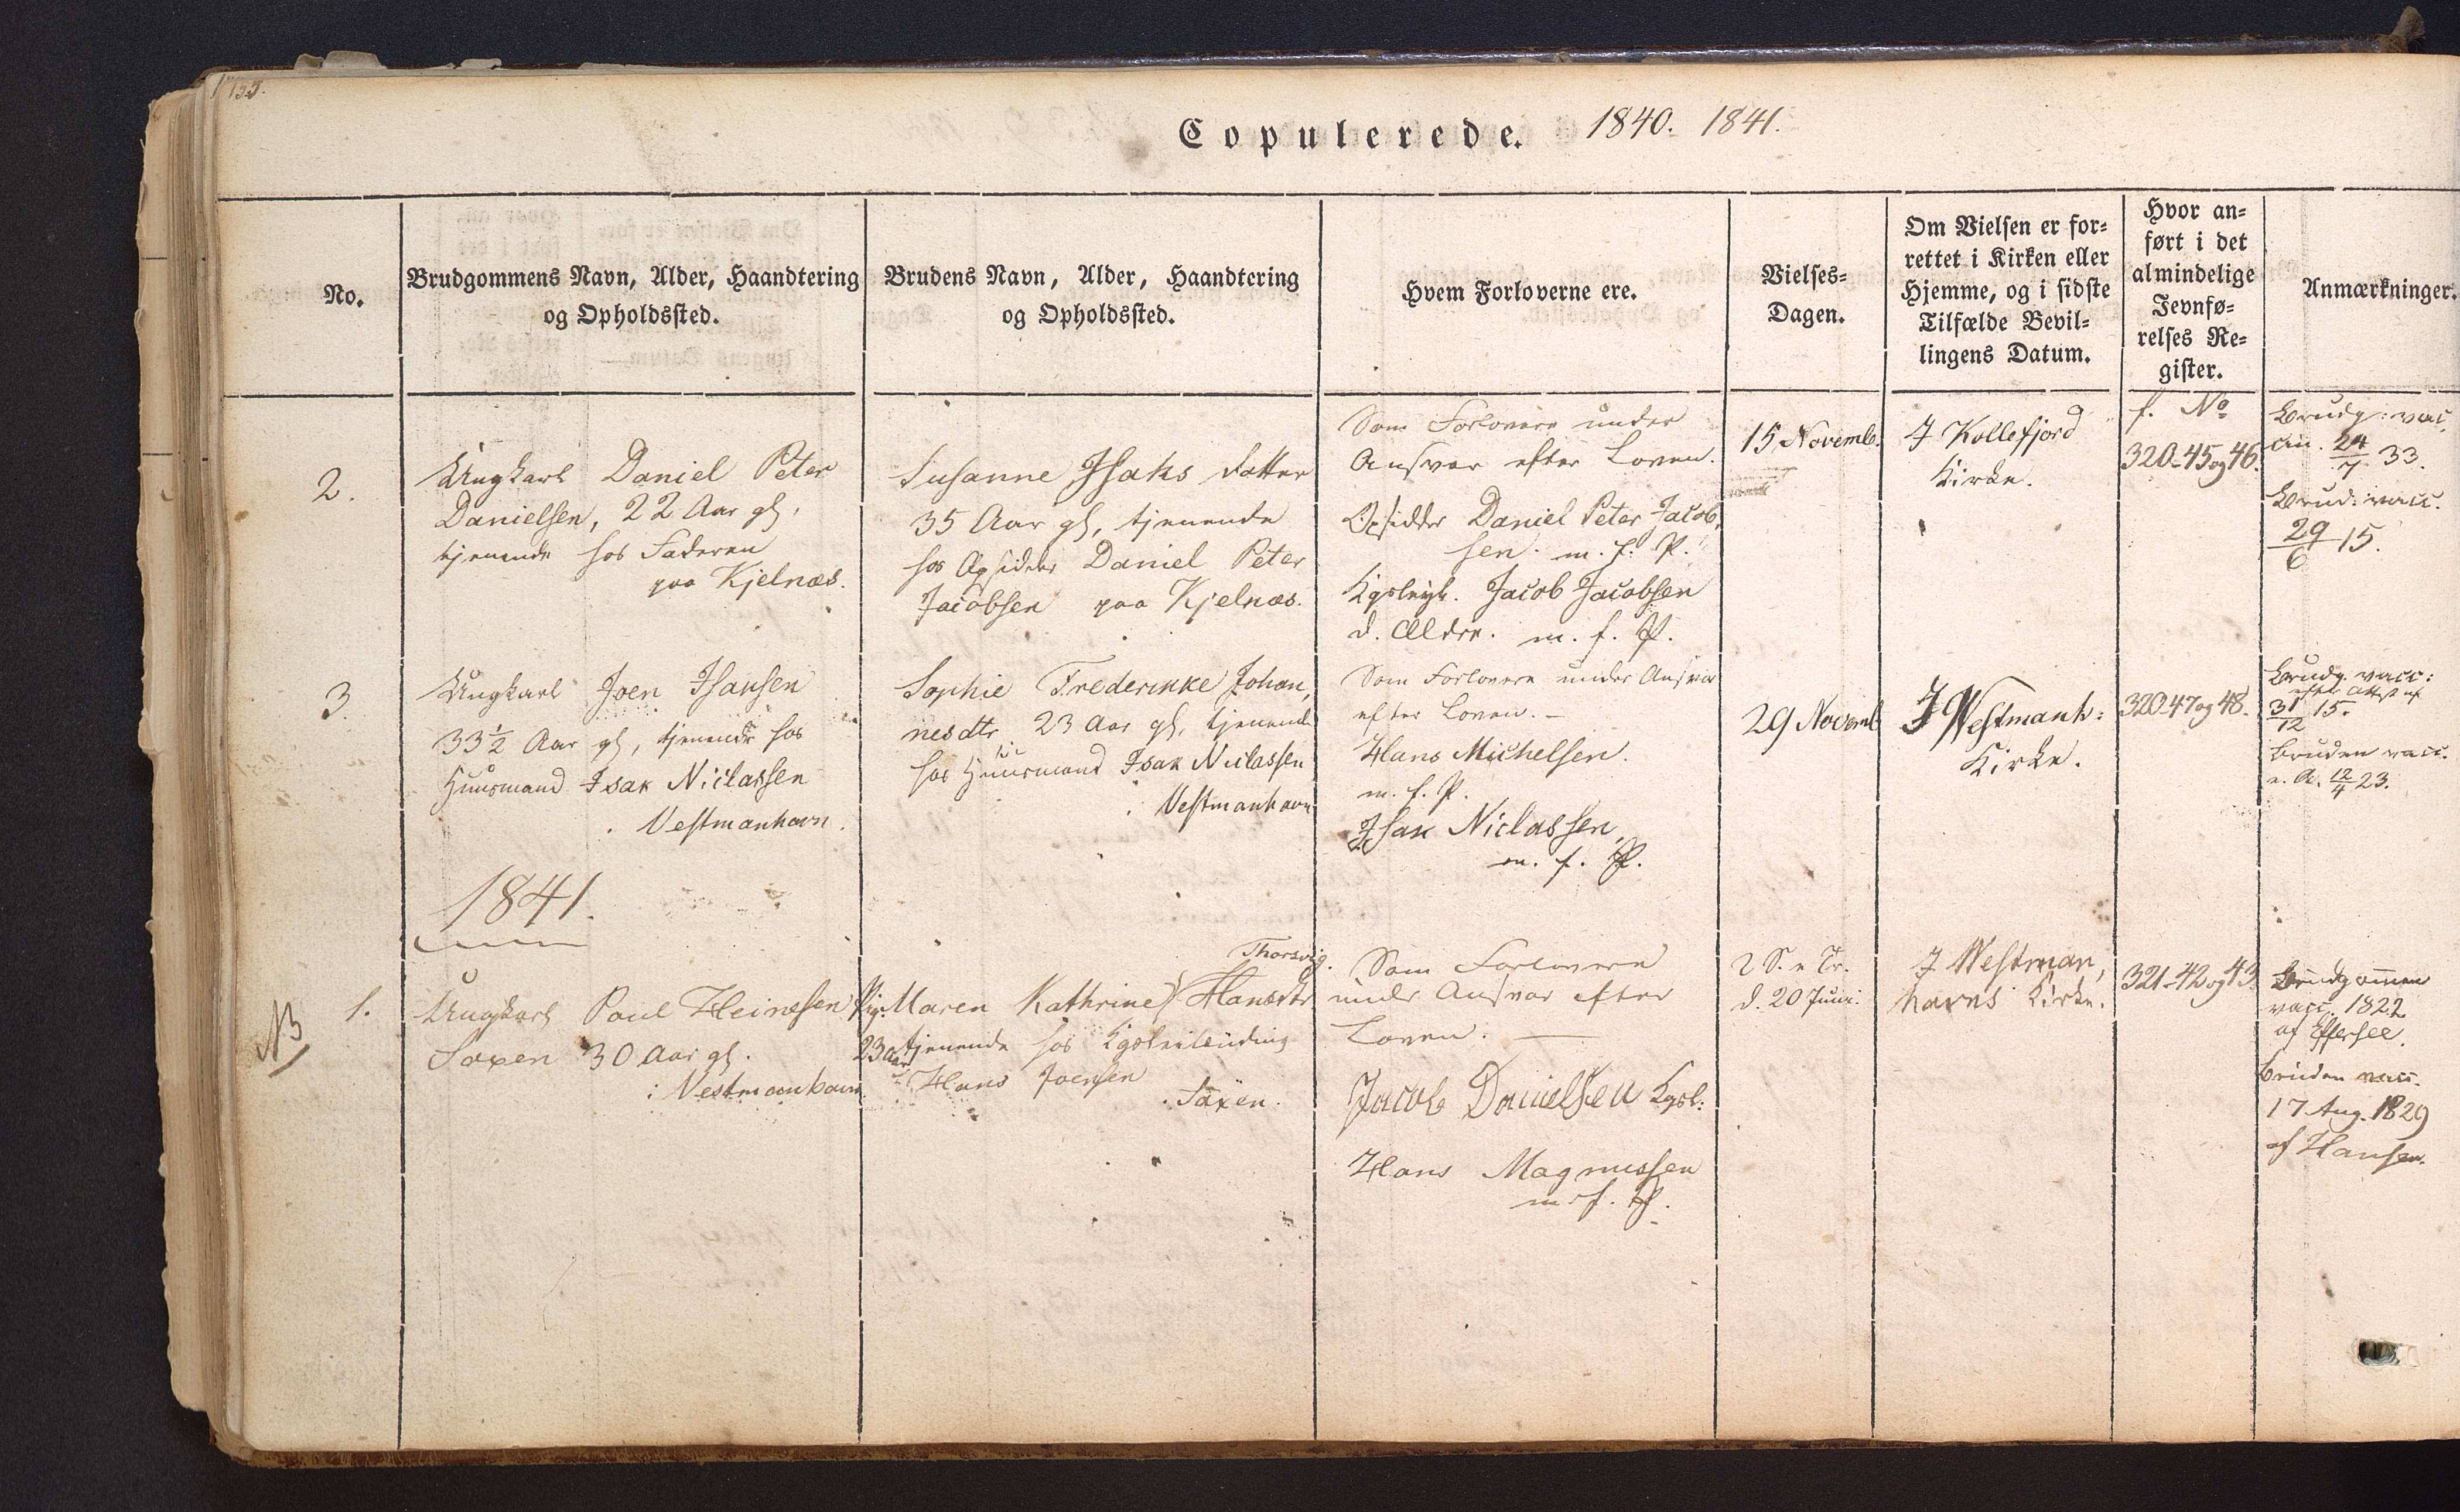 133.
Copulerede. 1840. 1841.
No.
Brudgommens Navn, Alder, Haandtering
og Opholdssted.
Brudens Navn, Alder, Haandtering
og Opholdssted.
Hvem Forloverne ere.
Vielses-
Dagen.
Om Vielsen er for-
rettet i Kirken eller
Hjemme, og i sidste
Tilfælde Bevil-
lingens Datum.
Hvor an-
ført i det
almindelige
Jevnfø-
relses Re-
gister.
Anmærkninger.
2.
Ungkarl Daniel Peter
Danielsen, 22 Aar gl,
tjenende hos Faderen
paa Kjelnæs.
Susanne Isaks datter
35 Aar gl, tjenende
hos Opsidder Daniel Peter
Jacobsen paa Kjelnæs.
Som Forlovere under
Ansvar efter Loven.
Opsidder Daniel Peter Jacob,
sen. m. f. P.
Jacob Jacobsen
d. Ældre. m. f. P.
15 Novemb.
I Kollefjord
Kirke.
f. No
320-45og46.
Brudg: vac.
an. 24/7 33.
Brud: vacc.
29/6 15.
3.
Ungkarl Joen Isaksen
33½ Aar gl, tjenende hos
Huusmand Isak Niclassen
Vestmanhavn.
Sophie Frederikke Johan,
nesdtr 23 Aar gl, tjenende
hos Huusmand Isak Niclassen
Vestmanhavn
Som Forlovere under Ansvar
efter Loven. -
Hans Michelsen.
m. f. P.
Isak Niclassen,
m. f. P.
29 Novemb
I Westmanh:
Kirke.
320-47og48.
Brudg. vacc:
efter Attest af
31/12 15.
Bruden vacc.
e. A. 12/4 23.
1841.
NB
1.
Ungkarl Poul Heinesen
Saxen 30 Aar gl.
: Vestmanhavn
Thorsvig.
Pig. Maren Kathrine Hansdtr
23 Aar tjenende hos
Hans Joensen
Saxen.
Som Forlovere
under Ansvar efter
Loven. —
Jacob Danielsen Kgsl:
Hans Magnussen
m. f. P.
2 S. e Tr.
d. 20 Juni.
I Westman,
havns Kirke.
321-42og43.
Brudgommen
vacc. 1822
af Effersøe.
Bruden vacc.
17 Aug. 1829
af Hansen.